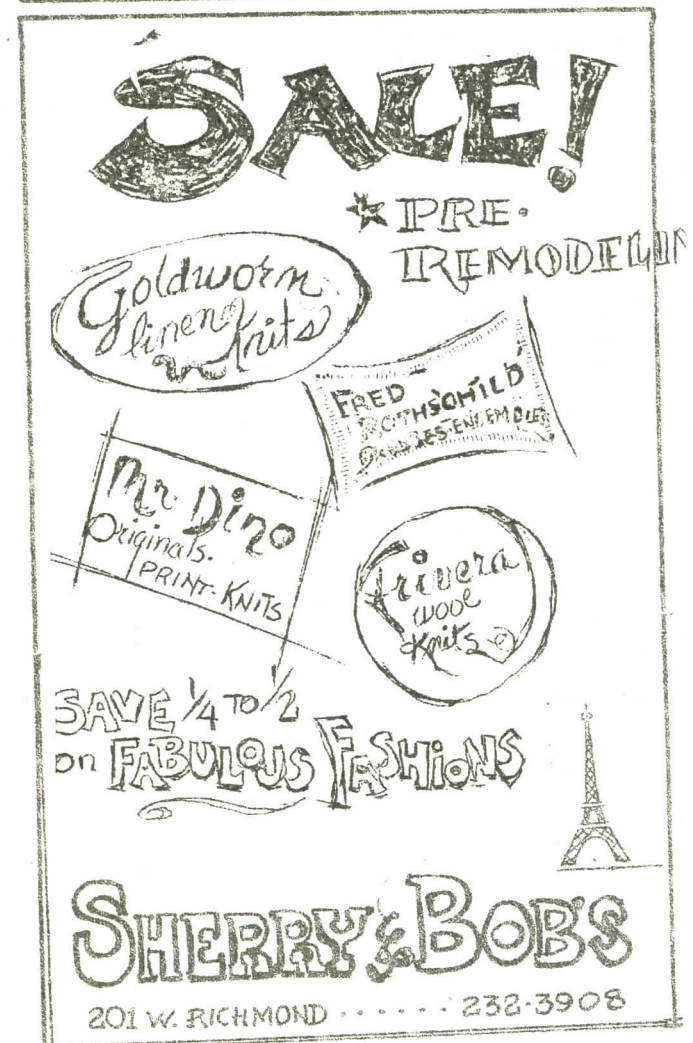 SALE!
PRE-
REMODELIN
Goldworm
linen Knits
FRED
ROTHSCHILD
DRESSES-ENSEMBLES
Mr. Dino
Originals.
PRINT-KNITS
wool
Knits
SAVE 1/4 TO 1/2
on FABULOUS FASHIONS
SHERRY & BOB'S
201 W. RICHMOND ...... 232-3908